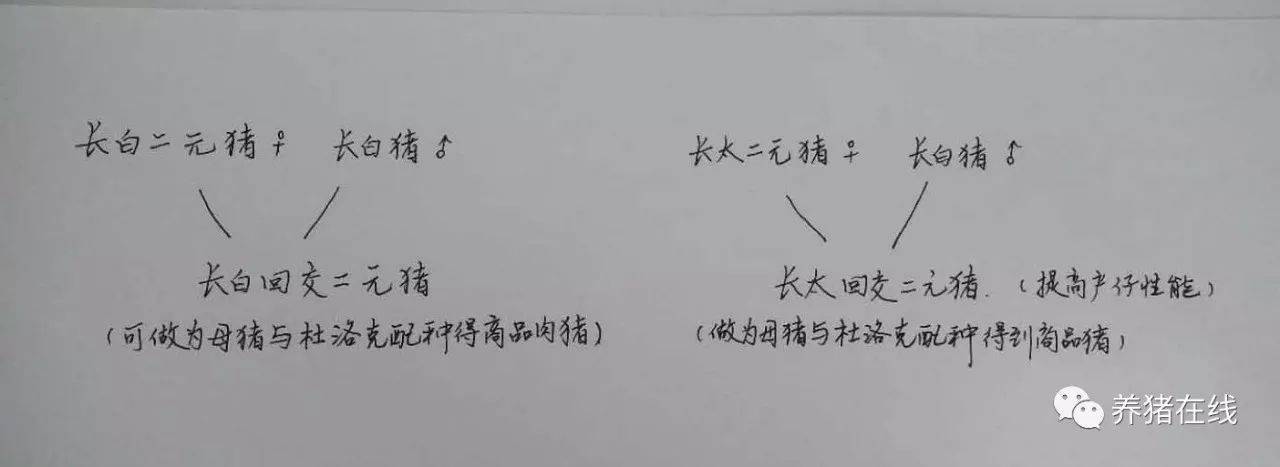 长白二元猪♀ 长白猪♂
长白回交二元猪
(可做为母猪与杜洛克配种得商品肉猪)
长太二元猪♀ 长白猪♂
长太回交二元猪.(提高产仔性能)
(做为母猪与杜洛克配种得到商品猪)
养猪在线